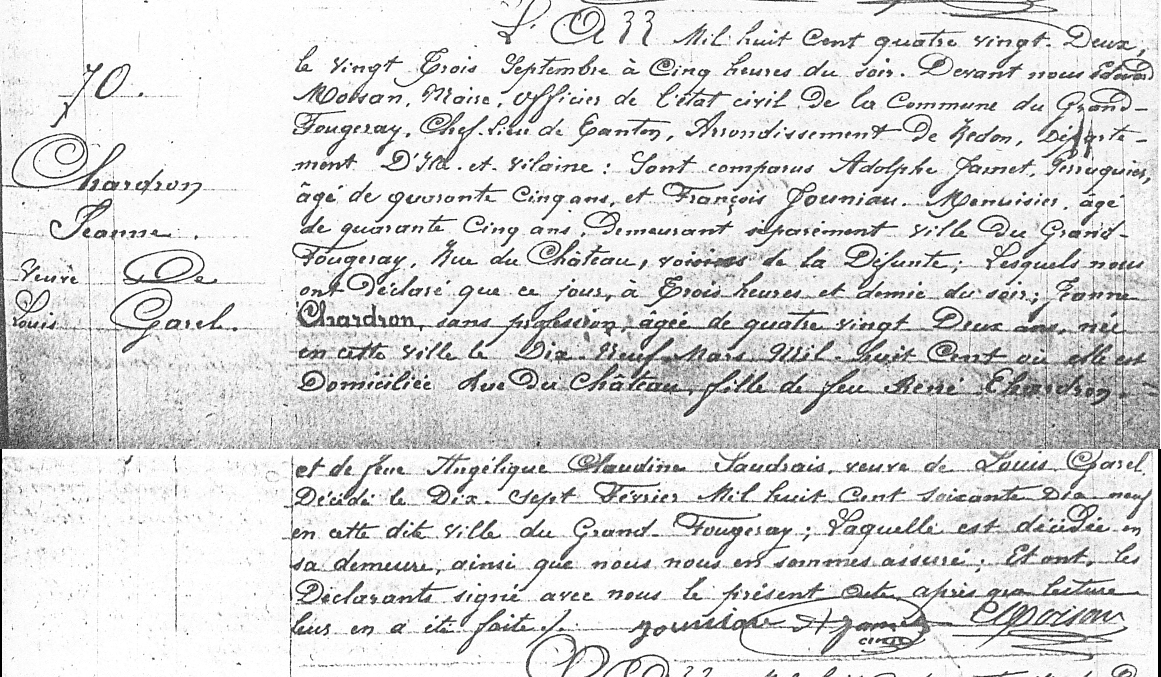 L'An Mil huit Cent quatre vingt-Deux,
le vingt Trois Septembre à Cinq heures du soir. Devant nous Edouard
Moisan, Maire, Officier de l'état civil de la Commune du Grand-
Fougeray, Chef-lieu de Canton, Arrondissement de Redon, Départe-
ment D'Ille-et-Vilaine : Sont comparus Adolphe Jamet, Perruquier,
âgé de quarante Cinq ans, et François Jouniau, Menuisier, âgé
de quarante Cinq ans, Demeurant séparément ville du Grand-
Fougeray, Rue du Château, voisins de la Défunte; Lesquels nous
ont Déclaré que ce jour, à Trois heures et demie du soir; Jeanne
Chardron, sans profession, âgée de quatre vingt Deux ans, née
en cette ville le Dix-Neuf Mars Mil-huit Cent ou elle est
Domiciliée Rue Du Château, fille de feu René Chardron
70.
Chardron
Jeanne.
Veuve De
Louis Garel.
et de feue Angélique Claudine Saudrais, veuve de Louis Garel,
Décédé le Dix-sept Février Mil huit Cent soixante Dix neuf
en cette dite ville du Grand-Fougeray; Laquelle est décédée en
sa demeure, ainsi que nous nous en sommes assuré. Et ont, les
Déclarants signé avec nous le présent acte, après que lecture
leur en a été faite ./.
Jouniau A Jamet EMoisan